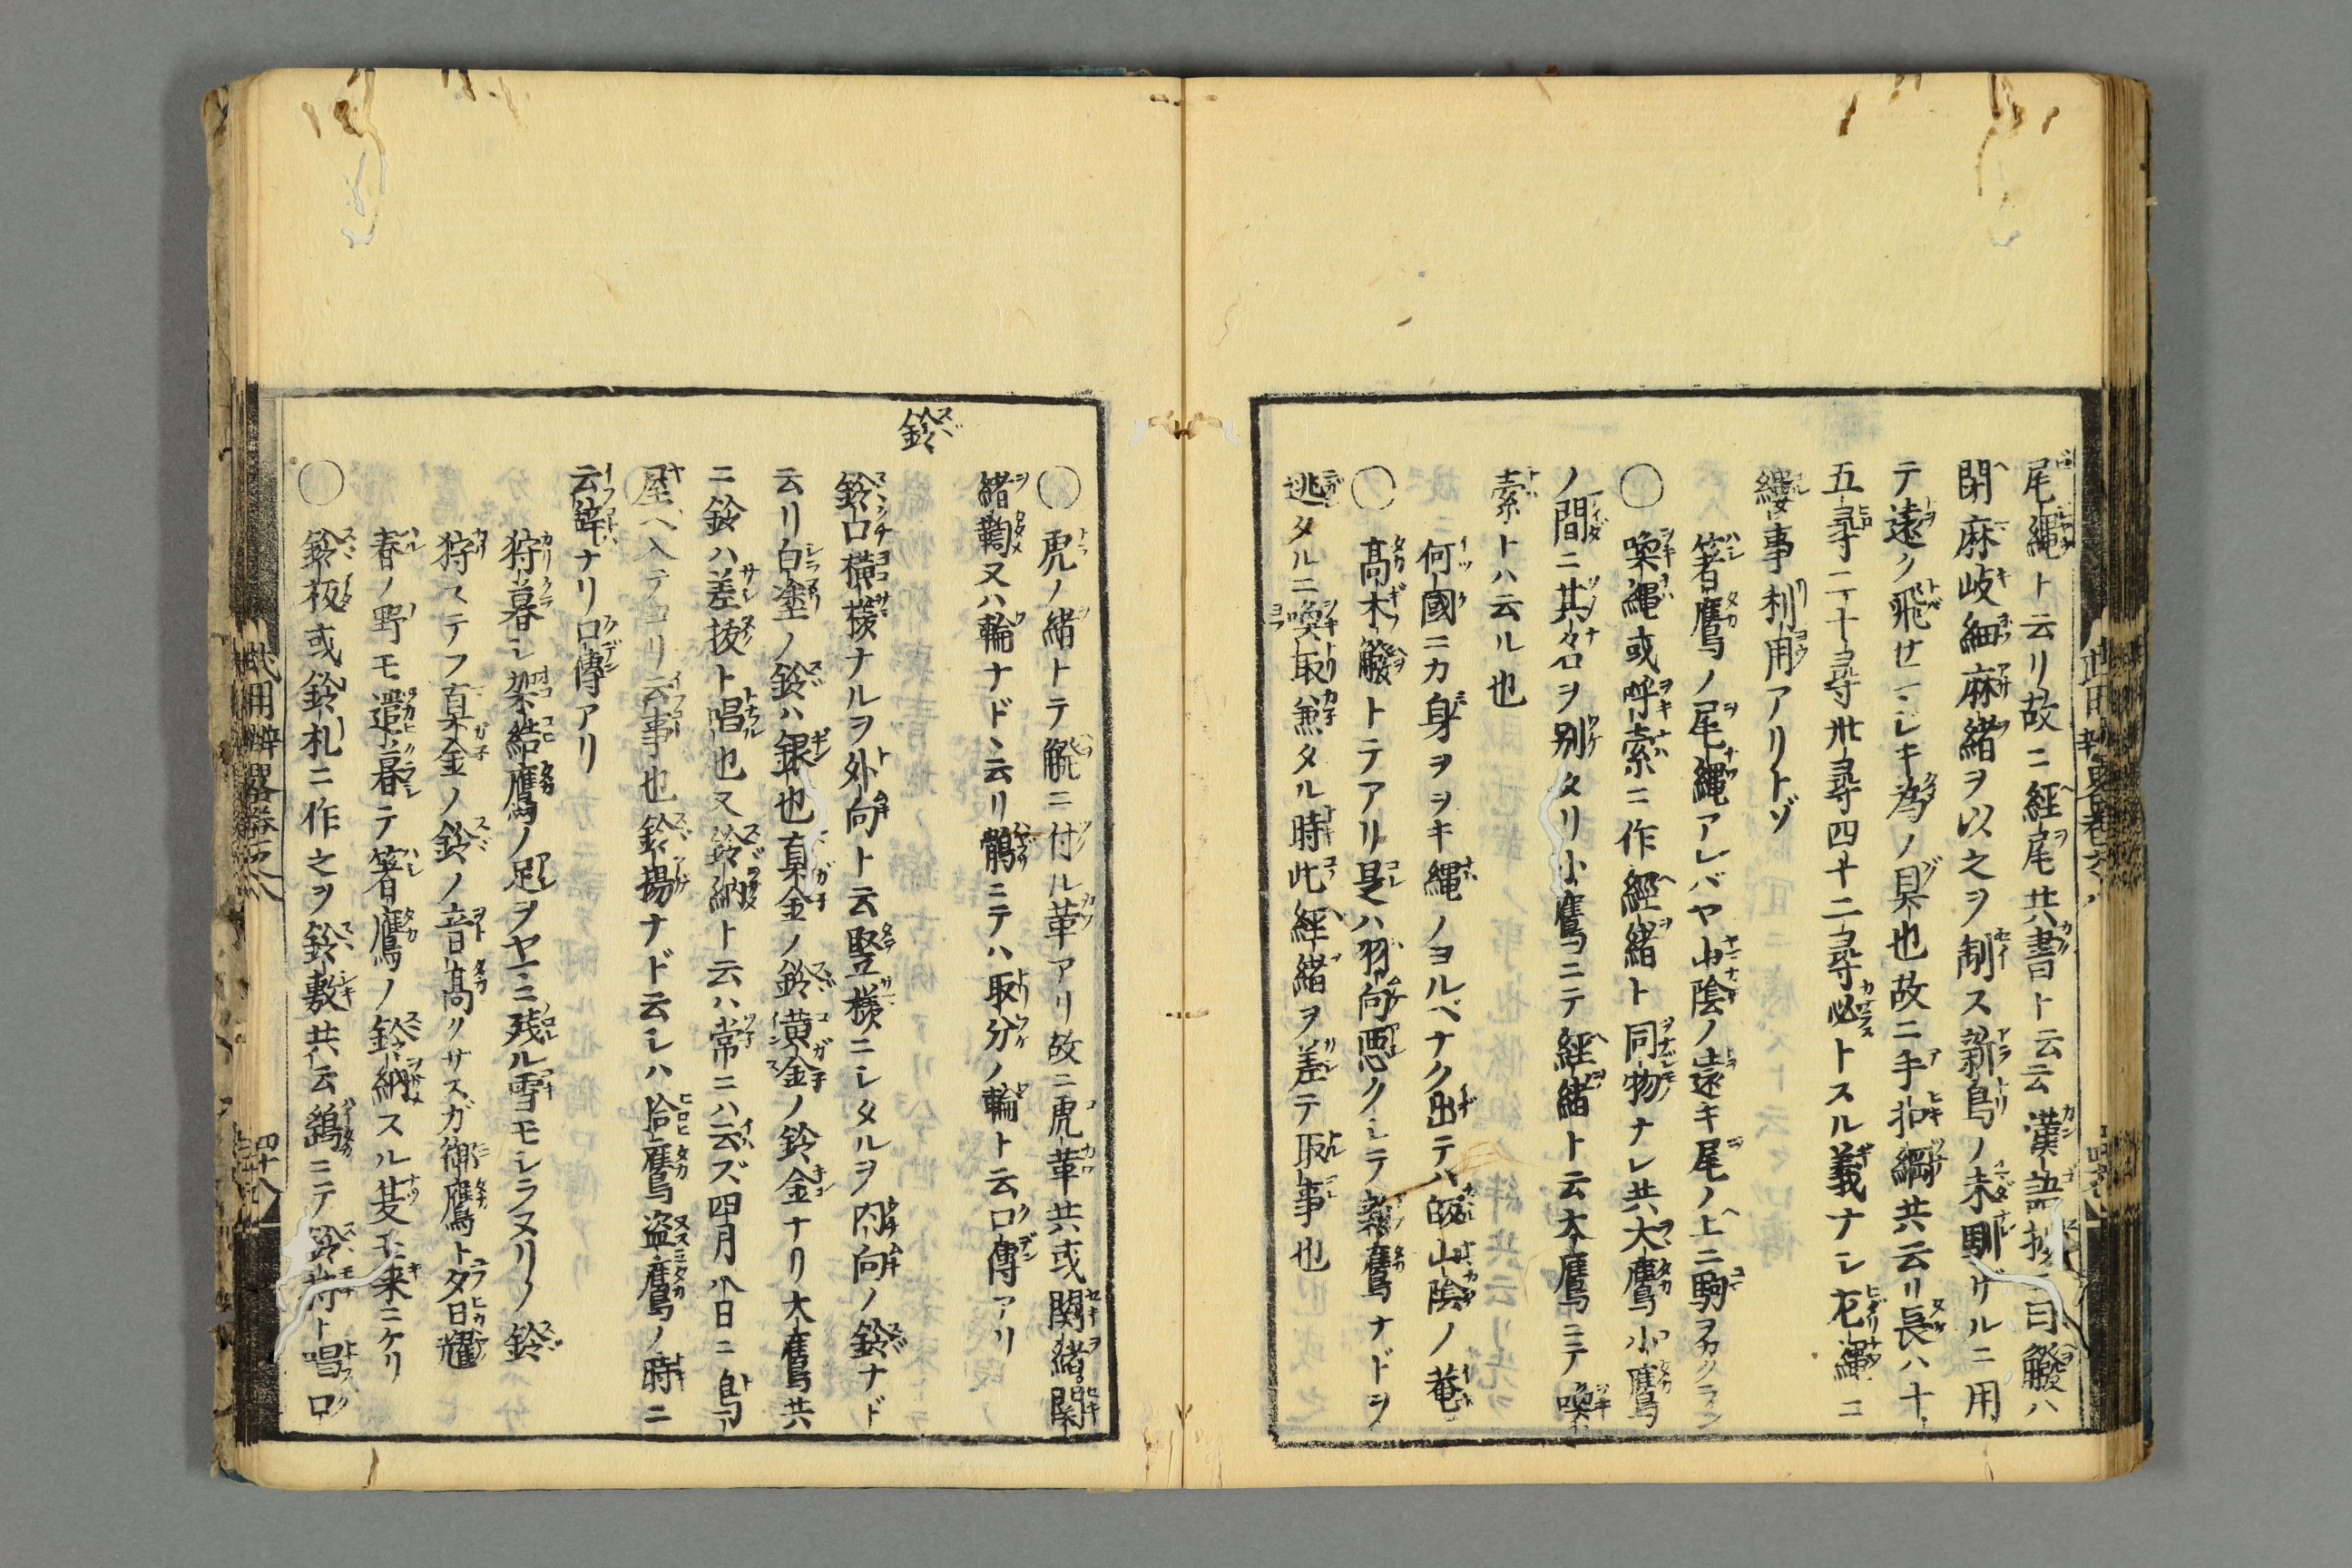 尾縄ト云リ故ニ經尾共書ト云云漢語抄ニ曰䋎ハ
閇麻岐細麻緒ヲ以之ヲ制ス新鳥ノ未馴ザルニ用
テ遠ク飛せマシキ為ノ具也故ニ手拈綱共云リ長ハ十
五尋二十尋卅尋四十二尋必トスル義ナシ左縄ニ
縷事利用アリトゾ
箸鷹ノ尾縄アレバヤ山陰ノ遠キ尾ノ上ニ駒ヲカクラン
○喚縄或呼索ニ作經緒ト同物ナレ共大鷹小鷹
ノ間ニ其名ヲ別タリ小鷹ニテ經緒ト云大鷹ニテ喚
索トハ云ル也
何國ニカ身ヲヲキ縄ノヨルベナク出テハ皈山陰ノ菴
○髙木䋎トテアリ是ハ羽向悪クシテ新鷹ナドヲ
逃タルニ喚取兼タル時此經緒ヲ差テ取事也
○虎ノ緒トテ䋎ニ付ル革アリ故ニ虎革共或関緒関
緒鞫又ハ輪ナドヽ云リ鶻ニテハ取分ノ輪ト云口傳アリ
鈴
鈴口横様ナルヲ外向ト云竪様ニシタルヲ内向ノ鈴ナド
云リ白塗ノ鈴ハ銀也真金ノ鈴黄金ノ鈴金ナリ大鷹共
ニ鈴ハ差抜ト唱也又鈴納ト云ハ常ニハ云ズ四月八日ニ鳥
屋ヘ入テヨリ云事也鈴揚ナド云シハ拾鷹盗鷹ノ時ニ
云辞ナリ口傳アリ
狩暮シ架結鷹ノ足ヲヤミ残ル雪モシラヌリノ鈴
狩ステフ真金ノ鈴ノ音髙クサスガ御鷹ト夕日耀
春ノ野モ遣暮テ箸鷹ノ鈴納スル夏モ来ニケリ
○鈴板或鈴札ニ作之ヲ鈴敷共云鷂ニテ鈴持ト唱口
武用辨畧巻之八
四十八